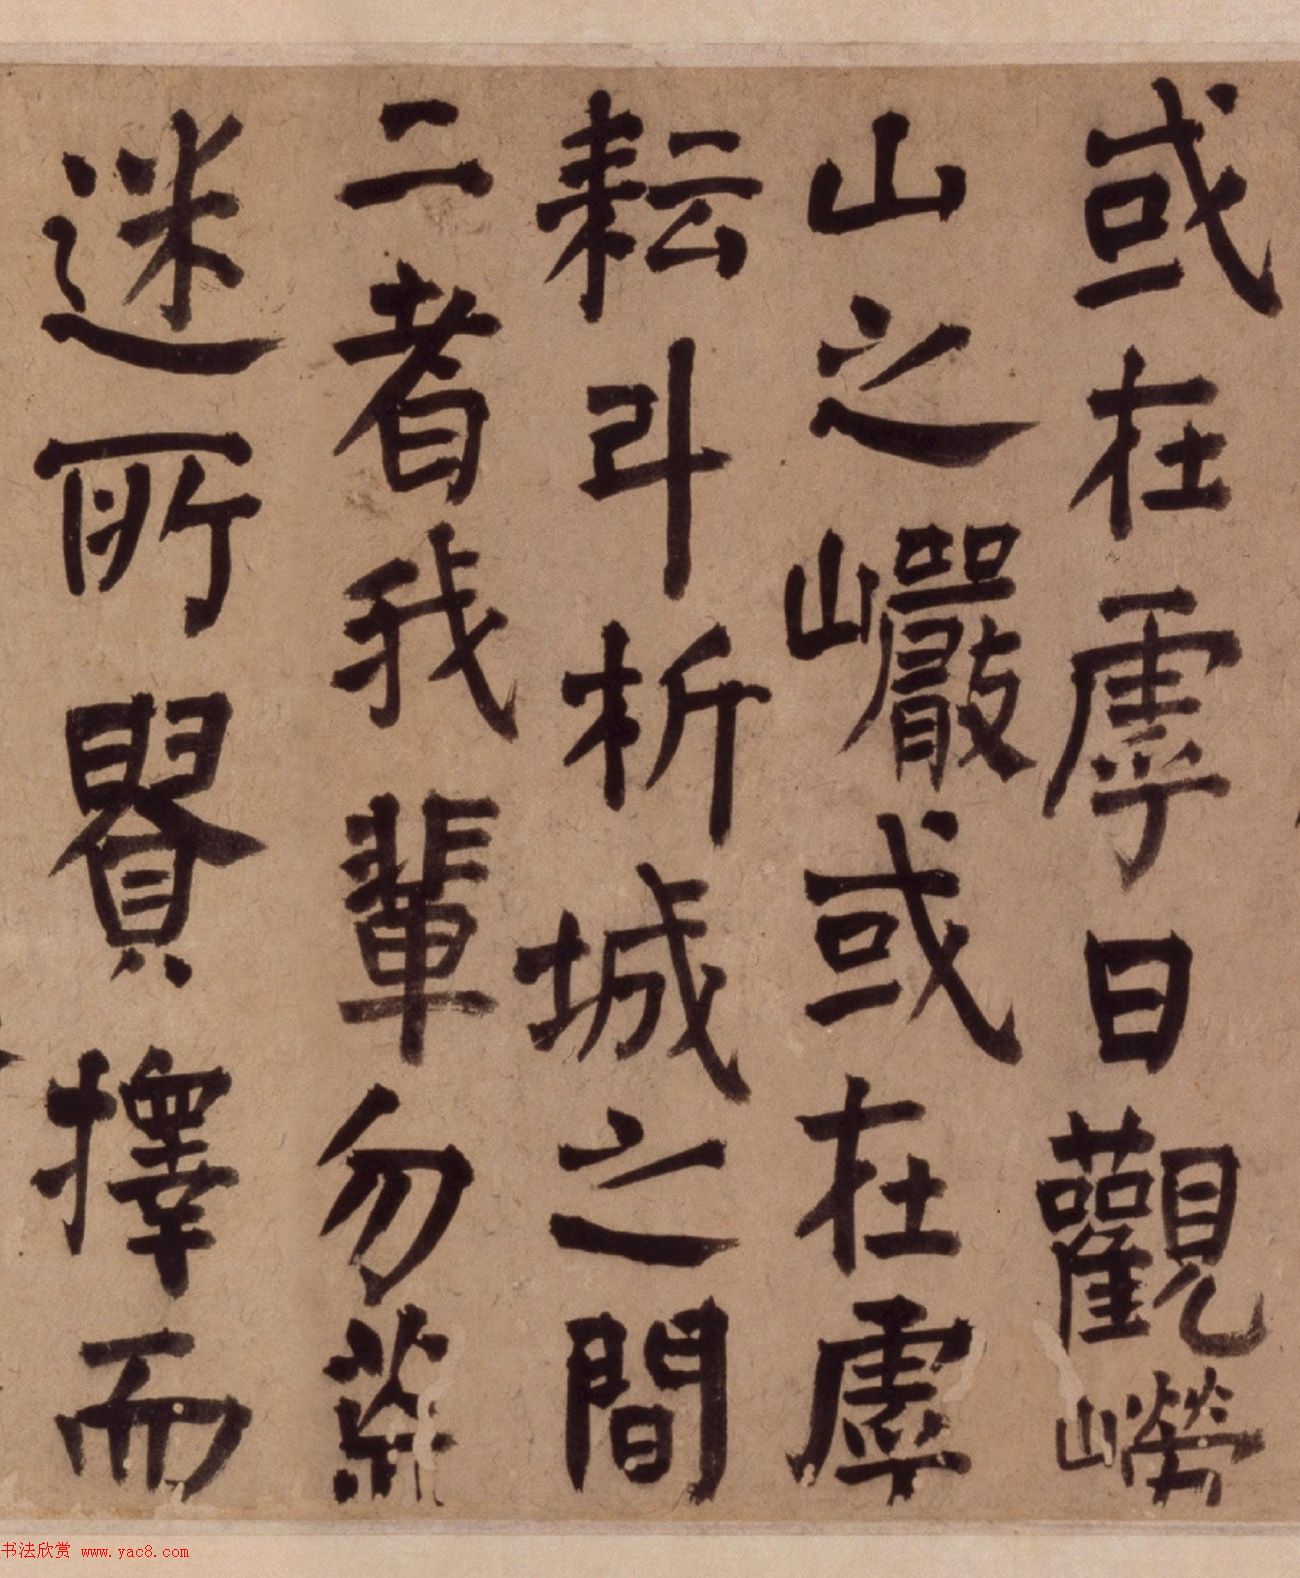 或在虖日觀嶗
山之巖或在虖
耘斗析城之間
二者我輩勿
迷所擇而
书法欣赏 www.yac8.com